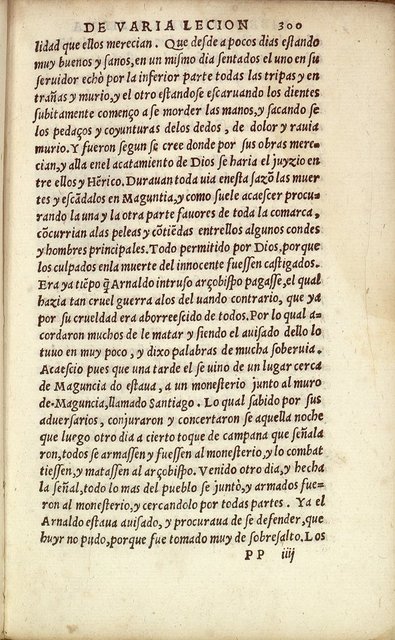 DE VARIA LECION 300
lidad que ellos merecian. Que desde a pocos dias estando
muy buenos y sanos, en un mismo dia sentados el uno en su
seruidor echò por la inferior parte todas las tripas y en
trañas y murio, y el otro estandose escaruando los dientes
subitamente començo a se morder las manos, y sacando se
los pedaços y coyunturas delos dedos, de dolor y rauia
murio. Y fueron segun se cree donde por sus obras mere-
cian, y alla enel acatamiento de Dios se haria el juyzio en
tre ellos y Hērico. Durauan toda uia enesta sazō las muer
tes y escādalos en Maguntia, y como suele acaescer procu-
rando la una y la otra parte fauores de toda la comarca,
cōcurrian alas peleas y cōtiēdas entrellos algunos condes
y hombres principales. Todo permitido por Dios, porque
los culpados enla muerte del innocente fuessen castigados.
Era ya tiēpo q̄ Arnaldo intruso arçobispo pagasse, el qual
hazia tan cruel guerra alos del uando contrario, que ya
por su crueldad era aborrescido de todos. Por lo qual a-
cordaron muchos de le matar y siendo el auisado dello lo
tuuo en muy poco, y dixo palabras de mucha soberuia.
Acaescio pues que una tarde el se uino de un lugar cerca
de Maguncia do estaua, a un monesterio junto al muro
de Maguncia, llamado Santiago. Lo qual sabido por sus
aduersarios, conjuraron y concertaron se aquella noche
que luego otro dia a cierto toque de campana que señala
ron, todos se armassen y fuessen al monesterio, y lo combat
tiessen, y matassen al arçobispo. Venido otro dia, y hecha
la señal, todo lo mas del pueblo se juntò, y armados fue-
ron al monesterio, y cercandolo por todas partes. Ya el
Arnaldo estaua auisado, y procuraua de se defender, que
huyr no pudo, porque fue tomado muy de sobresalto. Los
PP iiij